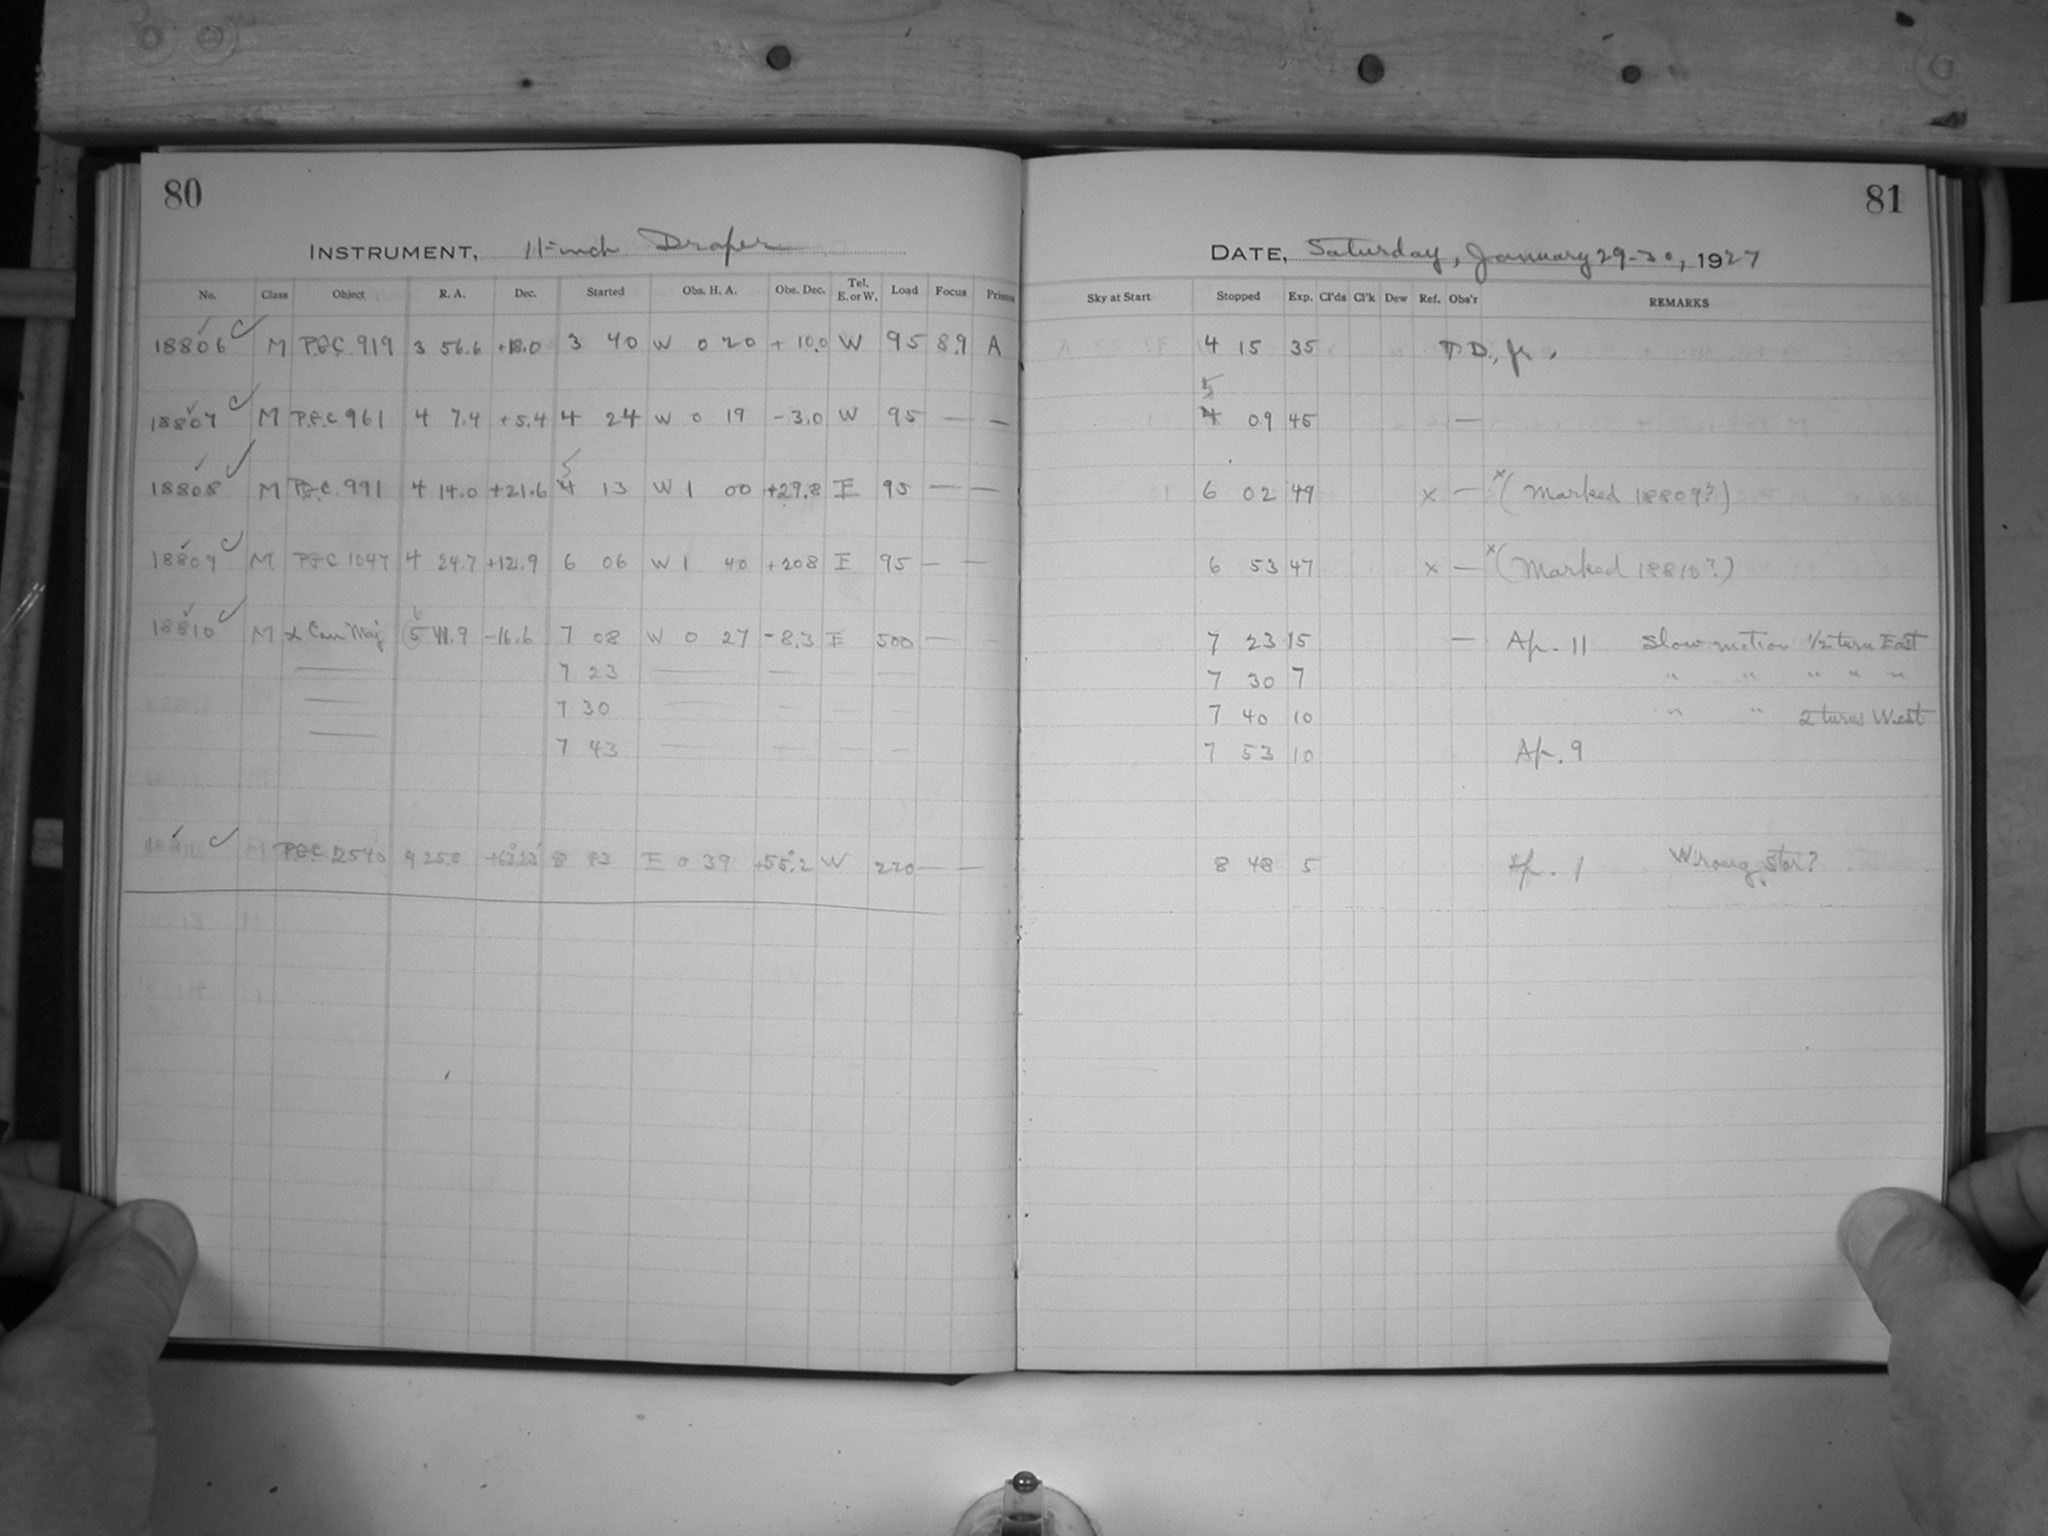 80
INSTRUMENT, 11-inch Draper
No. Class Object R. A. Dec. Started Obs. H. A. Obs. Dec. Tel. E. or W. Load Focus Prisms
18806 M P.G.C. 919 3 56.6 +18.0 3 40 W 0 20 + 10.0 W 95 8.9 A
18807 M P.G.C 961 4 7.4 +5.4 4 24 W 0 19 -3.0 W 95 — —
5
18808 M P.G.C. 991 4 14.0 +21.6 4 13 W 1 00 +29.8 E 95 — —
18809 M P.G.C 1047 4 24.7 +12.9 6 06 W 1 40 +20.8 E 95 — —
6
18810 M α Can Maj 5 41.9 -16.6 7 08 W 0 27 -8.3 E 500 — —
— 7 23 — — — —
— 7 30 — — — —
— 7 43 — — — —
M P.G.C. 2540 9 25.8 8 43 E 0 39 +55.2 W 220 — —
81
DATE, Saturday, January 29-30, 1927
Sky at Start Stopped Exp. Cl'ds Cl'k Dew Ref. Obs'r REMARKS
4 15 35 D., Jr.
5
4 09 45 —
6 02 49 x — x (Marked 18809?)
6 53 47 x — x (Marked 18810?)
7 23 15 — Ap. 11 Slow motion 1/2 turn East
7 30 7 " " " " "
7 40 10 " " 2 turns West
7 53 10 Ap. 9
8 48 5 Ap. 1 Wrong star?